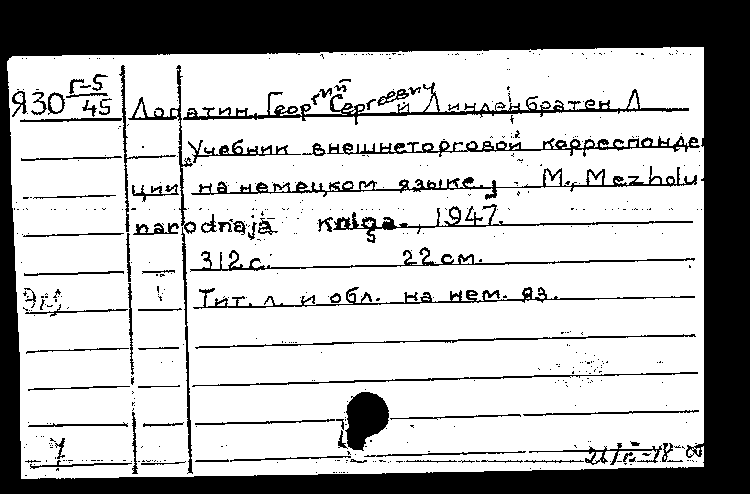 Я30 Г-5/45 Лопатин, Георгий Сергеевич и Линденбратен, Л
Учебник внешнеторговой корреспонден
ции на немецком языке., М., Mezhdu-
narodnaja kniga., 1947.
312 с. 22 см.
Тит. л. и обл. на нем. яз.